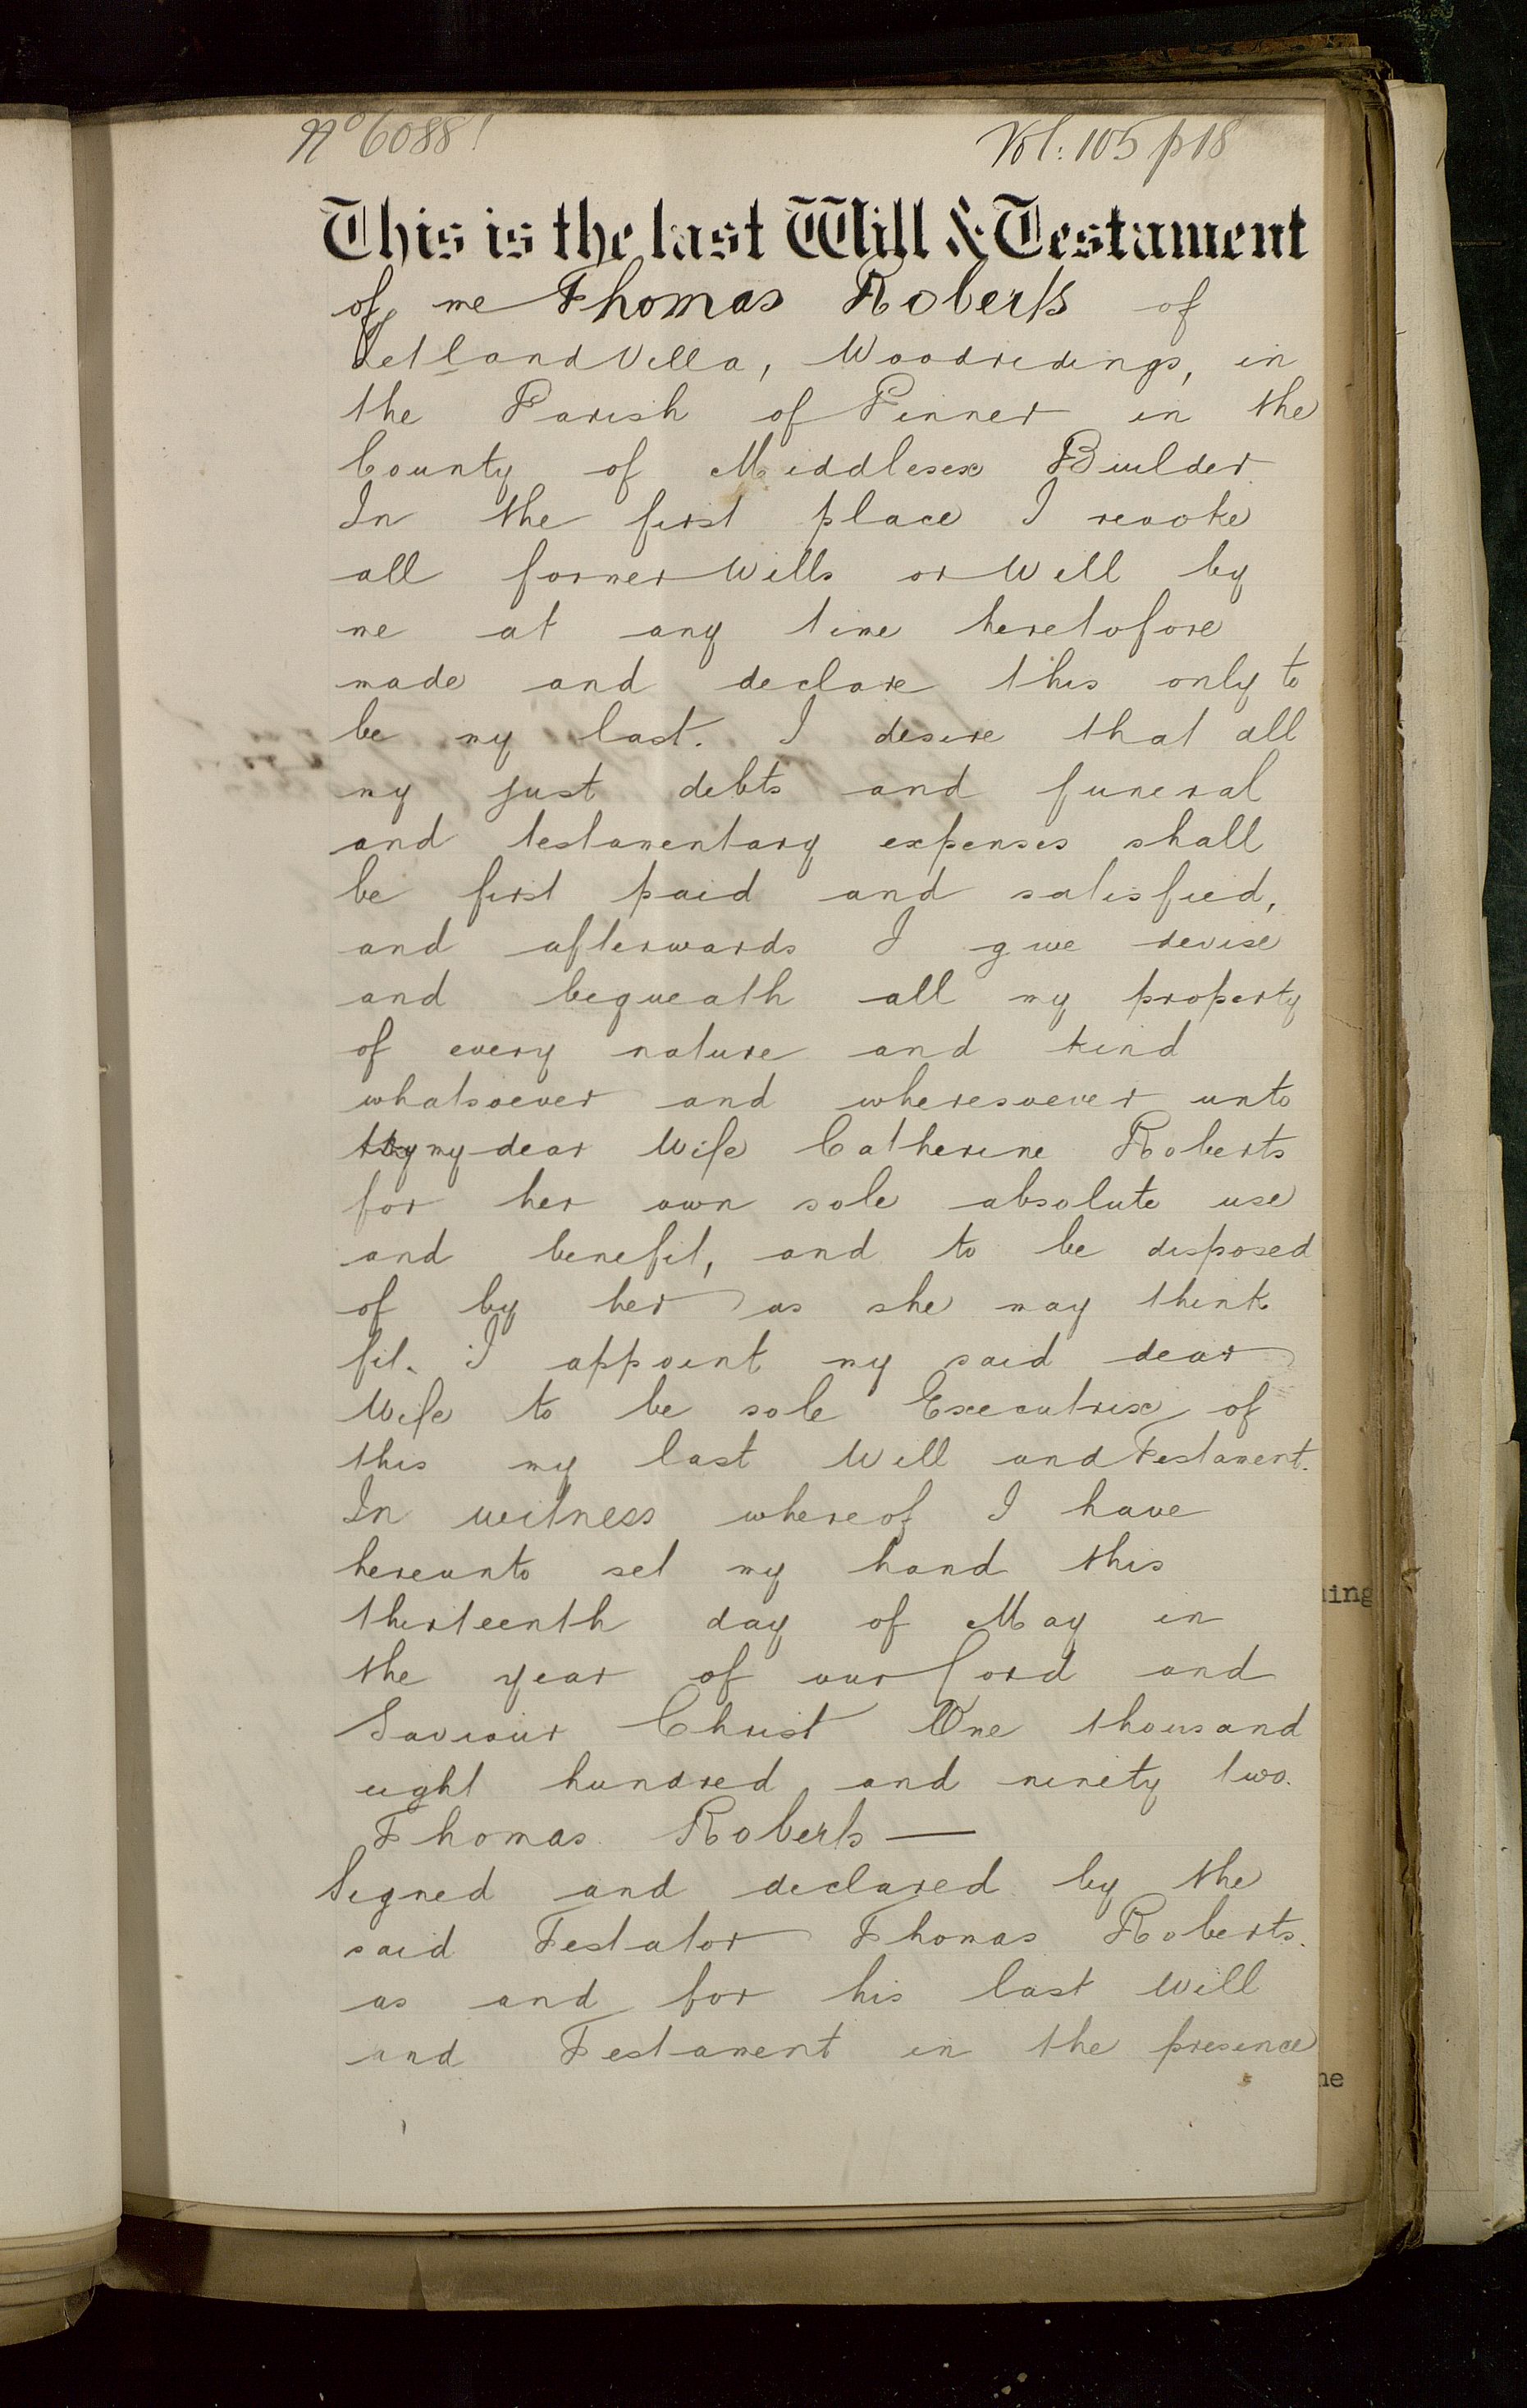 No 6088! Vol: 105 p 18
This is the last Will & Testament
of me Thomas Roberts of
Villa, Woodridings, in
the Parish of Pinner in the
County of Middlesex Builder
In the first place I revoke
all former Wills or Will by
me at any time heretofore
made and declare this only to
be my last. I desire that all
my just debts and funeral
and testamentary expenses shall
be first paid and satisfied,
and afterwards I give devise
and bequeath all my property
of every nature and kind
whatsoever and wheresoever unto
my dear Wife Catherine Roberts
for her own sole absolute use
and benefit, and to be disposed
of by her as she may think
fit. I appoint my said dear
Wife to be sole Executrix of
this my last Will and Testament.
In witness whereof I have
hereunto set my hand this
thirteenth day of May in
the year of our Lord and
Saviour Christ One thousand
eight hundred and ninety two.
Thomas Roberts —
Signed and declared by the
said Testator Thomas Roberts.
as and for his last Will
and Testament in the presence
ning
ne